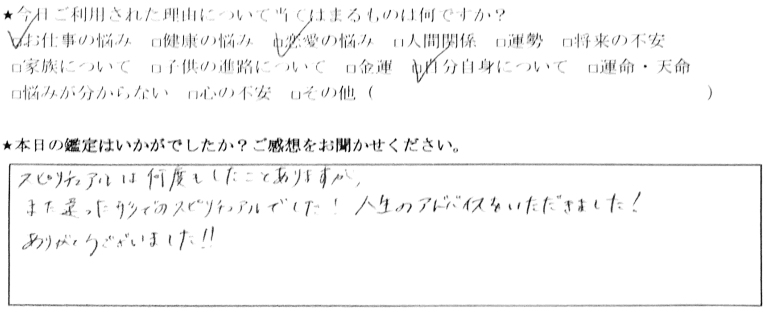 ★今日ご利用された理由について当てはまるものは何ですか？
☑お仕事の悩み □健康の悩み ☑恋愛の悩み □人間関係 □運勢 □将来の不安
□家族について □子供の進路について □金運 ☑自分自身について □運命・天命
□悩みが分からない □心の不安 □その他（ ）
★本日の鑑定はいかがでしたか？ご感想をお聞かせください。
スピリチュアルは何度もしたことありますが、
また違った形でのスピリチュアルでした！ 人生のアドバイスをいただきました！
ありがとうございました!!